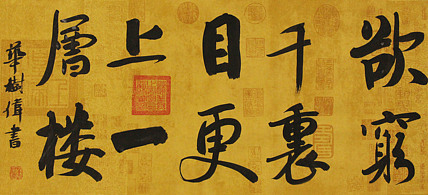 欲窮
千裏
目更
上一
層楼
華樹偉書